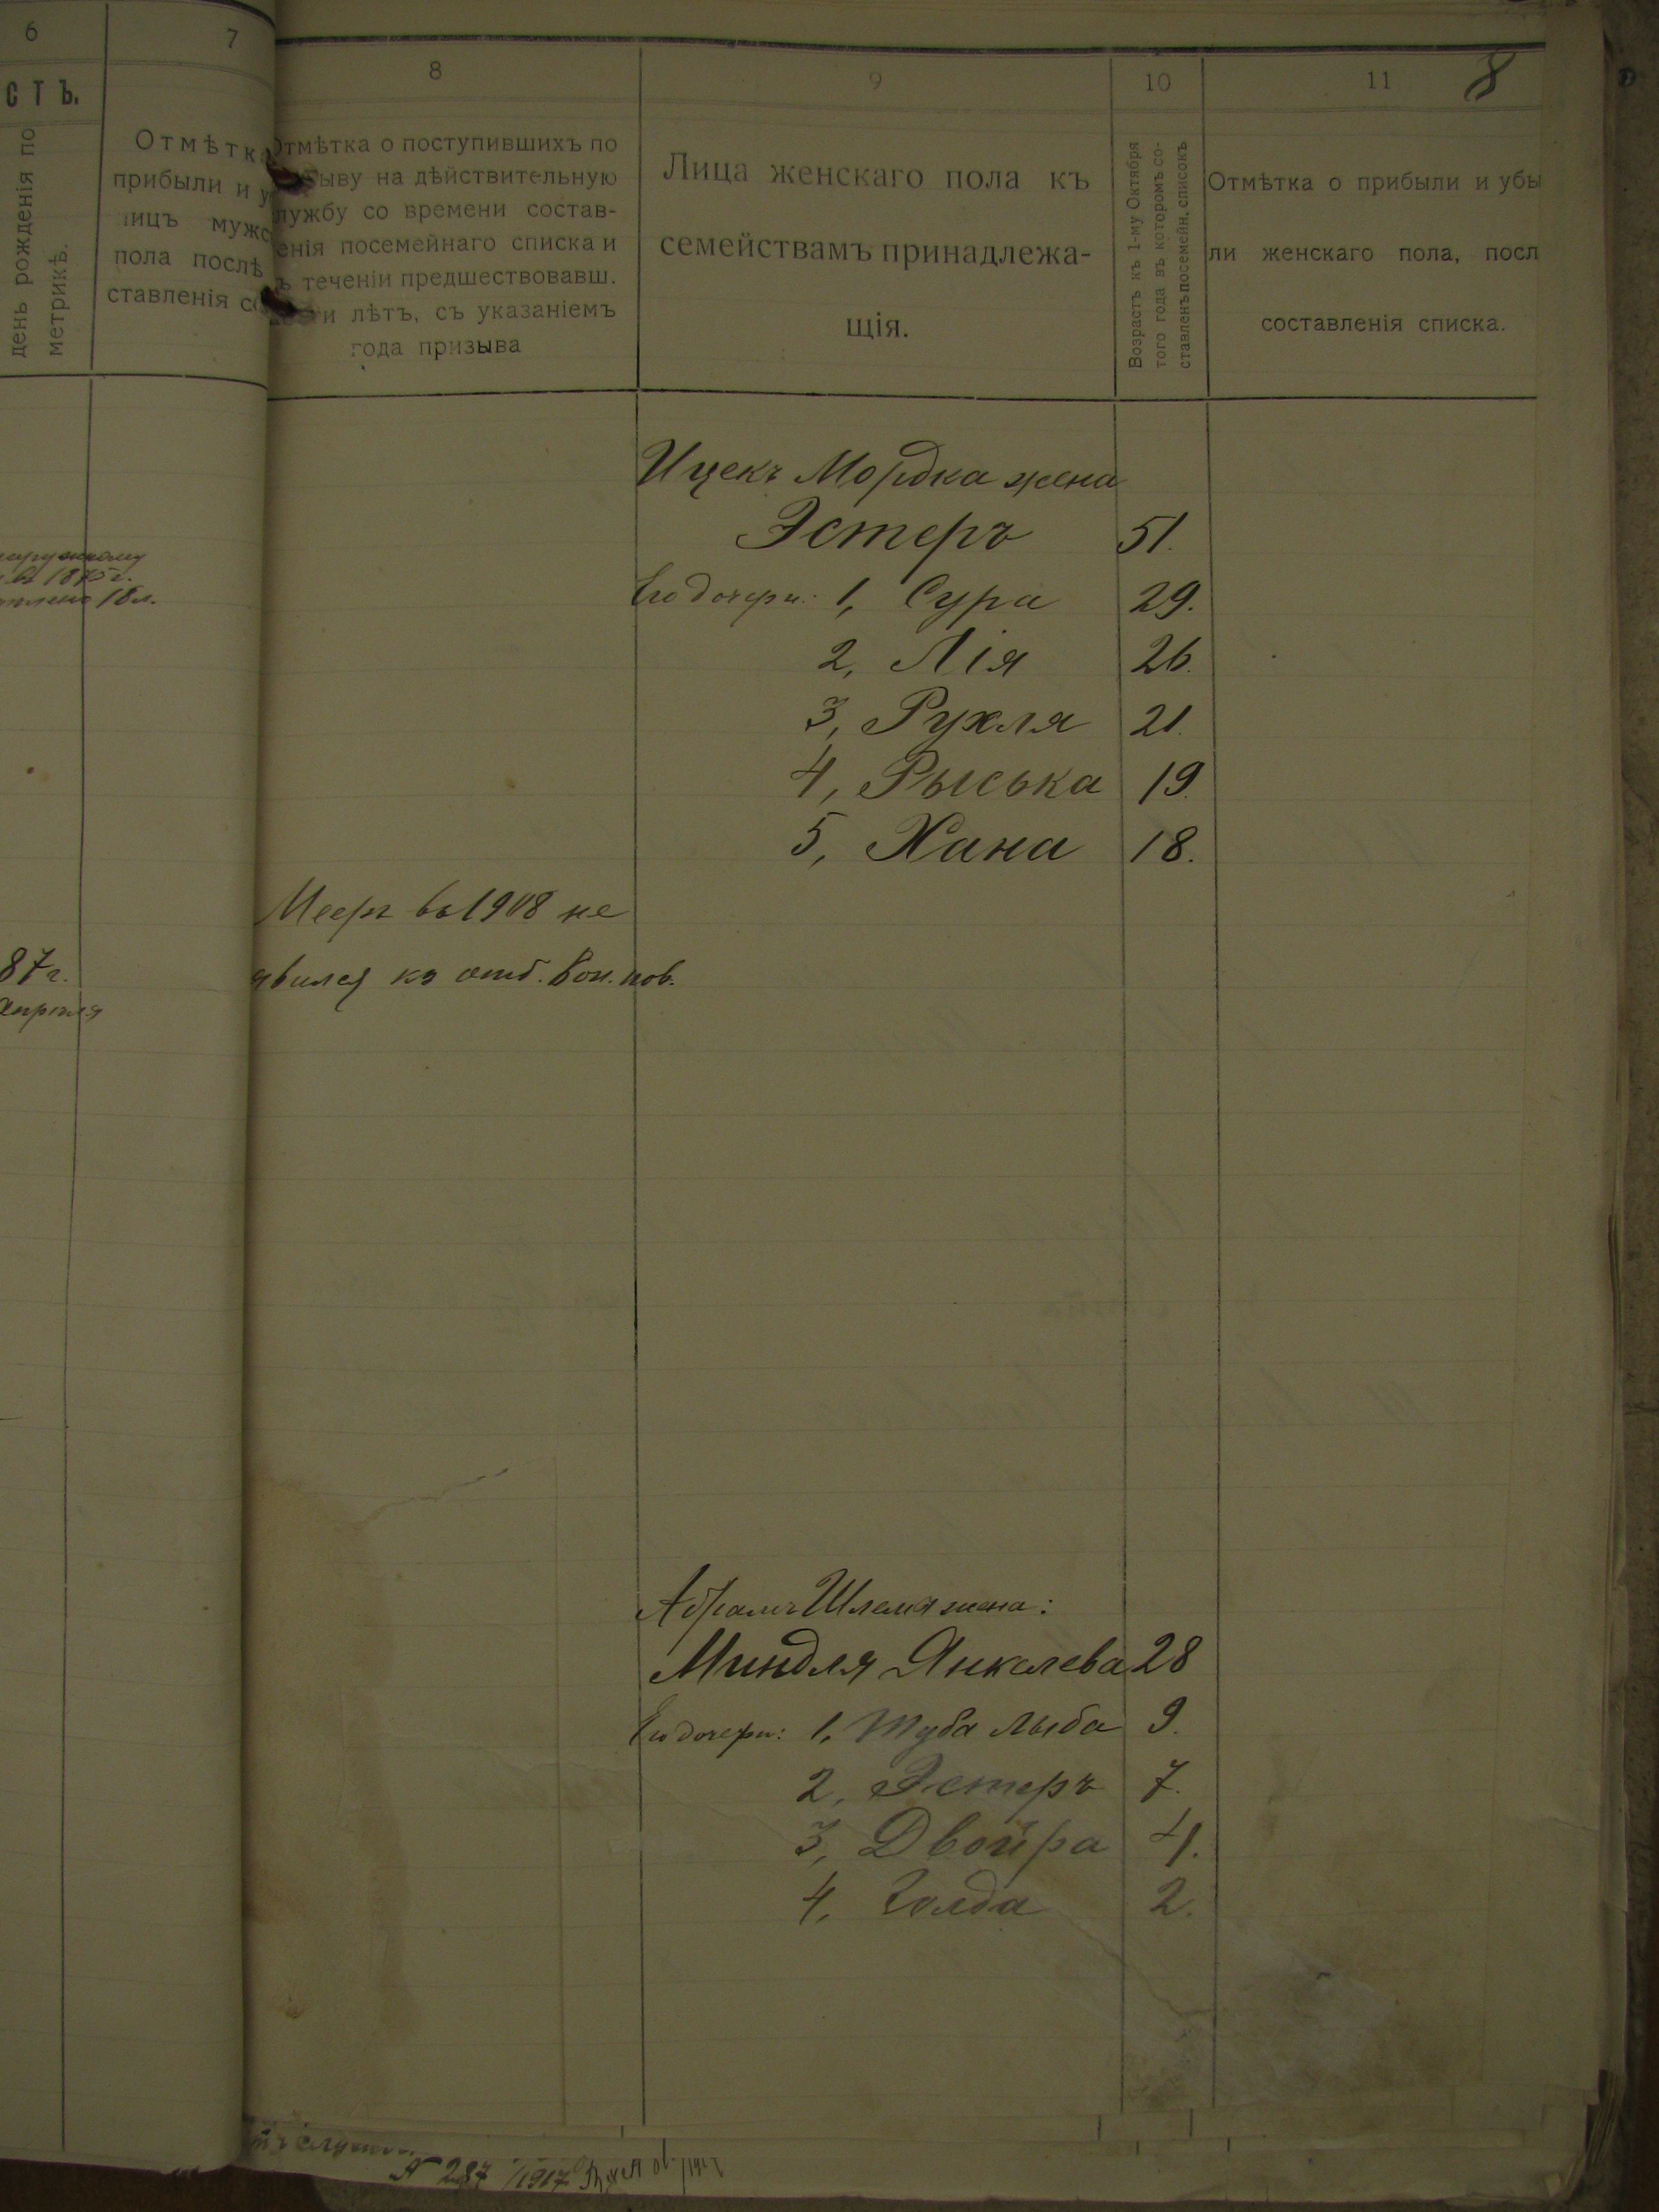 6
7
8
9
10
11
8
СТЪ.
день рожденія по
метрикѣ.
Отмѣтка
прибыли и у
лицъ мужс
пола послѣ
ставленія с
Отмѣтка о поступившихъ по
ыву на дѣйствительную
службу со времени состав-
енія посемейнаго списка и
теченіи предшествовавш.
ти лѣтъ, съ указаніемъ
года призыва
Лица женскаго пола къ
семействамъ принадлежа-
щія.
Возрастъ къ 1-му Октября
того года въ которомъ со-
ставленъ посемейн. списокъ
Отмѣтка о прибыли и убы
ли женскаго пола, посл
составленія списка.
Ицекъ Мордка жена
Эстеръ 51.
Его дочери: 1, Сура 29.
2, Лія 26.
3, Рухля 21.
4, Рыська 19.
5, Хана 18.
18 л.
Мееръ въ 1908 не
явился къ отб. Вои. пов.
87 г.
апрѣля
Абрамъ Шлема жена:
Миндля Янкелева 28
Его дочери: 1, Туба Лыба 9.
2, Эстеръ 7.
3, Двойра 4.
4, Голда 2.
№ 287 1917